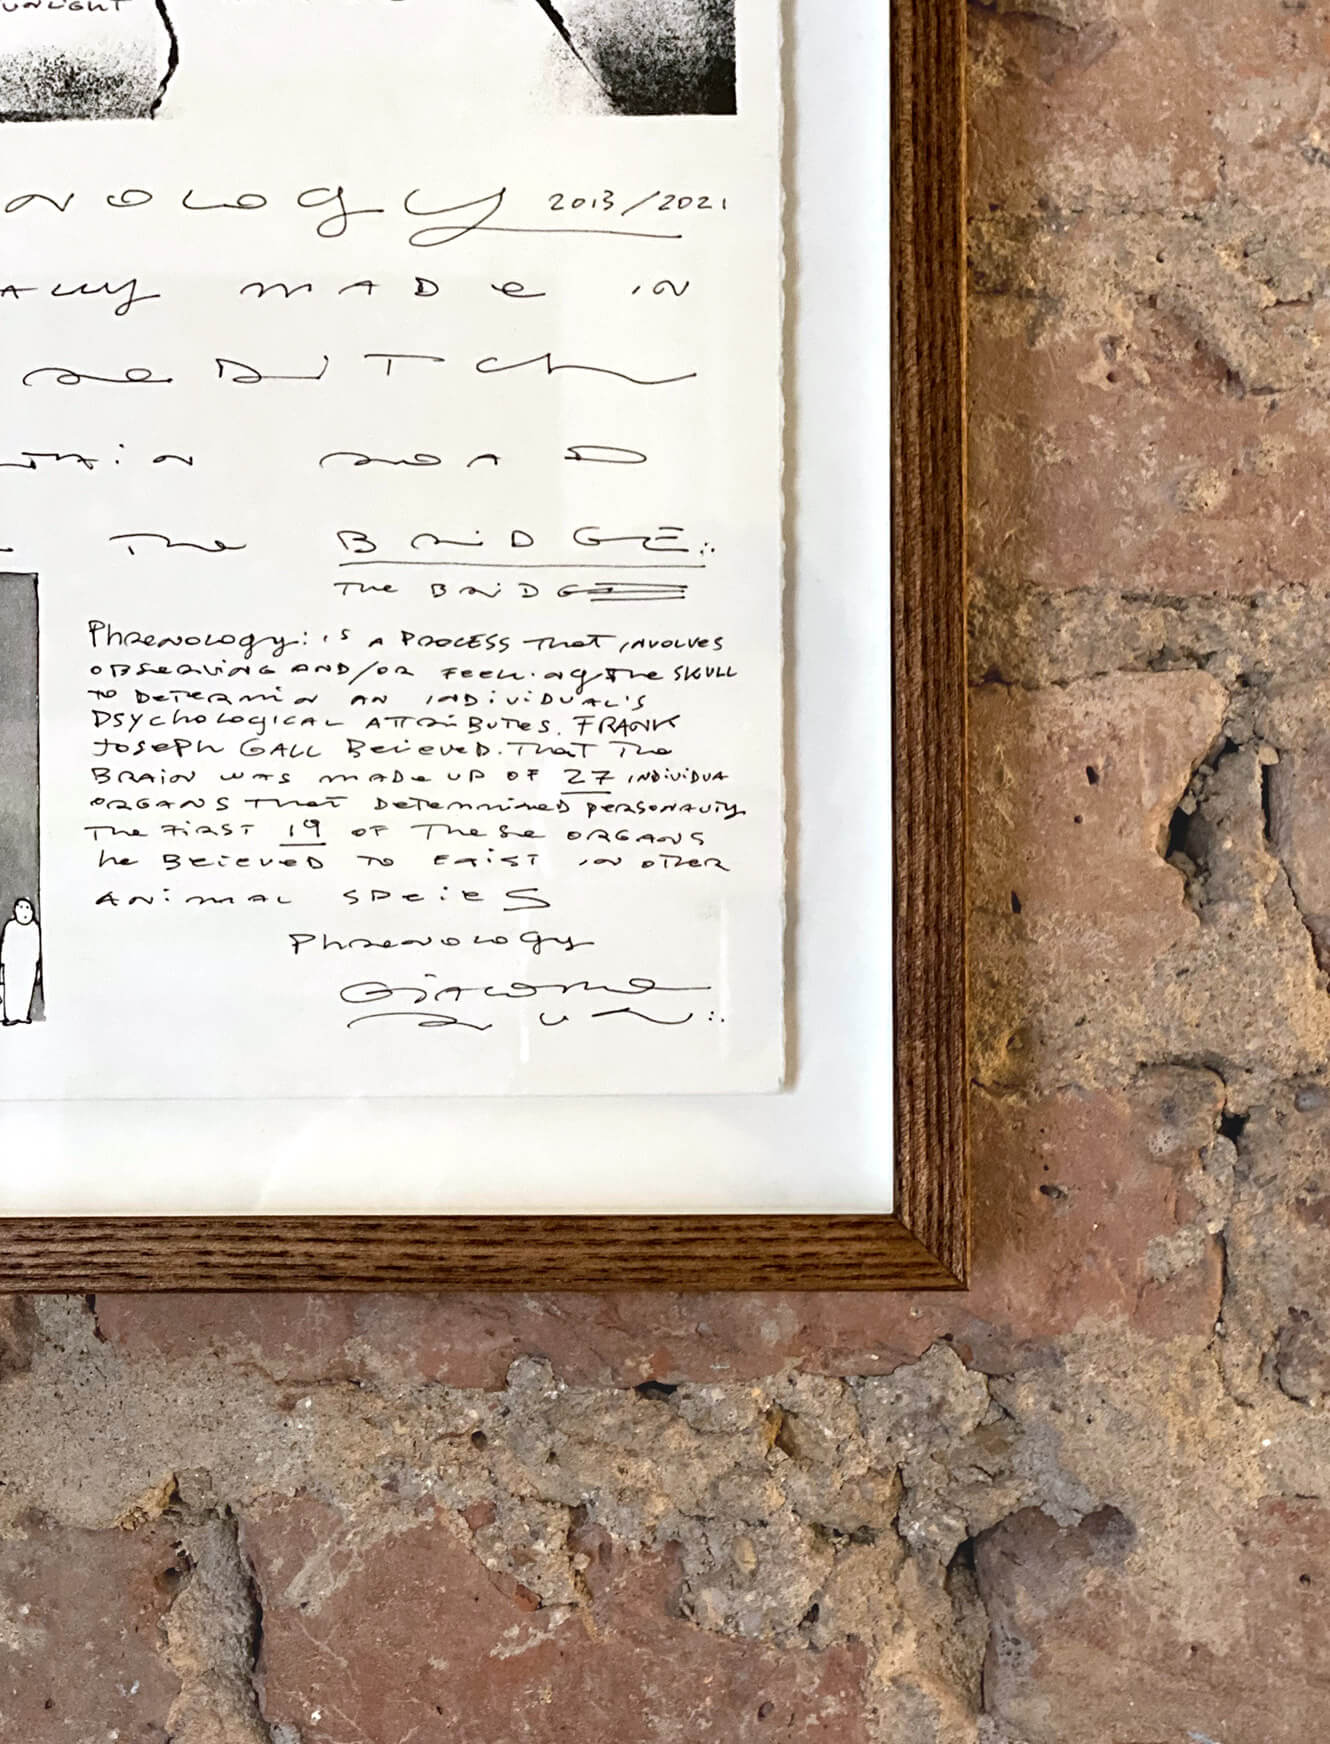 UNLIGHT
nology 2013/2021
ally made in
reDiTch
tain roAD
The BRiDGE:.
The BRiDGE
Phrenology: is A PROCESS That iNvolves
OBSeRviNG AND/OR Feeling The SKULL
TO DeTeRmiN AN iNDiViDUAL'S
PSYchological ATTRiBUTes. FRANK
JOSePh GALL Beieved. That The
BRAiN was made UP OF 27 iNDiviDUA
ORGANS That DeTermined personality
The FiRST 19 OF These ORGANS
he Beieved TO ExiST iN OTHeR
ANimAL SPeieS
Phrenology
Giacomo
Run:.